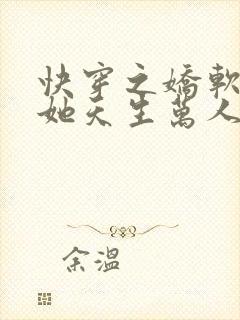 快穿之嬌軟
她天生萬人
余溫